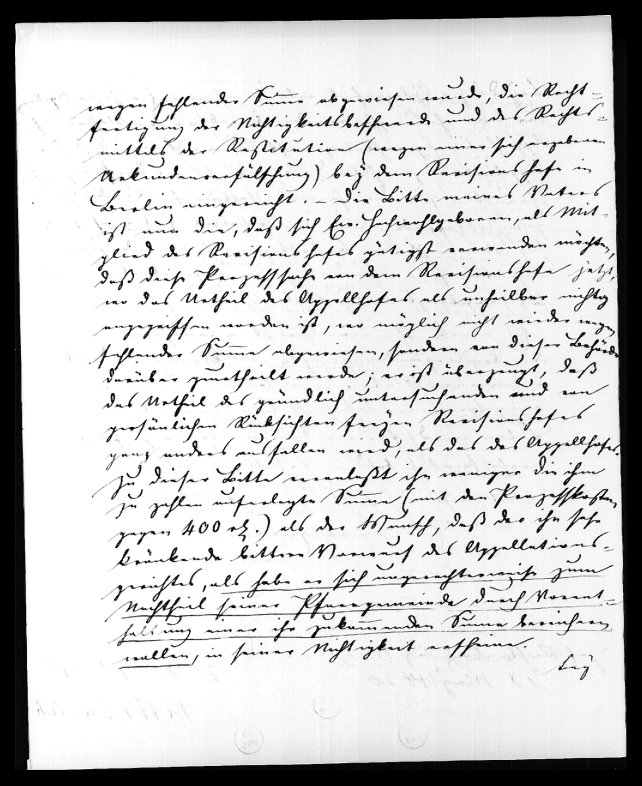 wegen fehlender Summe abgewiesen wurde, die Recht-
fertigung der Nichtigkeitsbeschwerde und des Rechts-
mittels der Restitution (wegen einer sich ergebenen
Urkundenverfälschung) bey dem Revisionshofe in
Berlin eingereicht. – Die Bitte meines Vaters
ist nun die, daß sich Ew. Hochwohlgeboren, als Mit-
glied des Revisionshofes gütigst verwenden möchten,
daß diese Prozeßsache von dem Revisionshofe jetzt,
wo das Urtheil des Appellhofes als unheilbar nichtig
angegriffen worden ist, wo möglich nicht wieder wegen
fehlender Summe abgewiesen, sondern von dieser Behörde
darüber geurtheilt werde; er ist überzeugt, daß
das Urtheil des gründlich untersuchenden und von
persönlichen Rücksichten freyen Revisionshofes
ganz anders ausfallen wird, als das des Appellhofes.
Zu dieser Bitte veranlaßt ihn weniger die ihm
zu zahlen auferlegte Summe (mit den Prozeßkosten
gegen 400 rth.) als der Wunsch, daß der ihn sehr
kränkende bittere Vorwurf des Appellations-
gerichtes, als habe er sich ungerechterweise zum
Nachtheil seiner Pfarrgemeinde durch Vorent-
haltung einer ihr zukommenden Summe bereichern
wollen, in seiner Nichtigkeit erscheine.
Bey